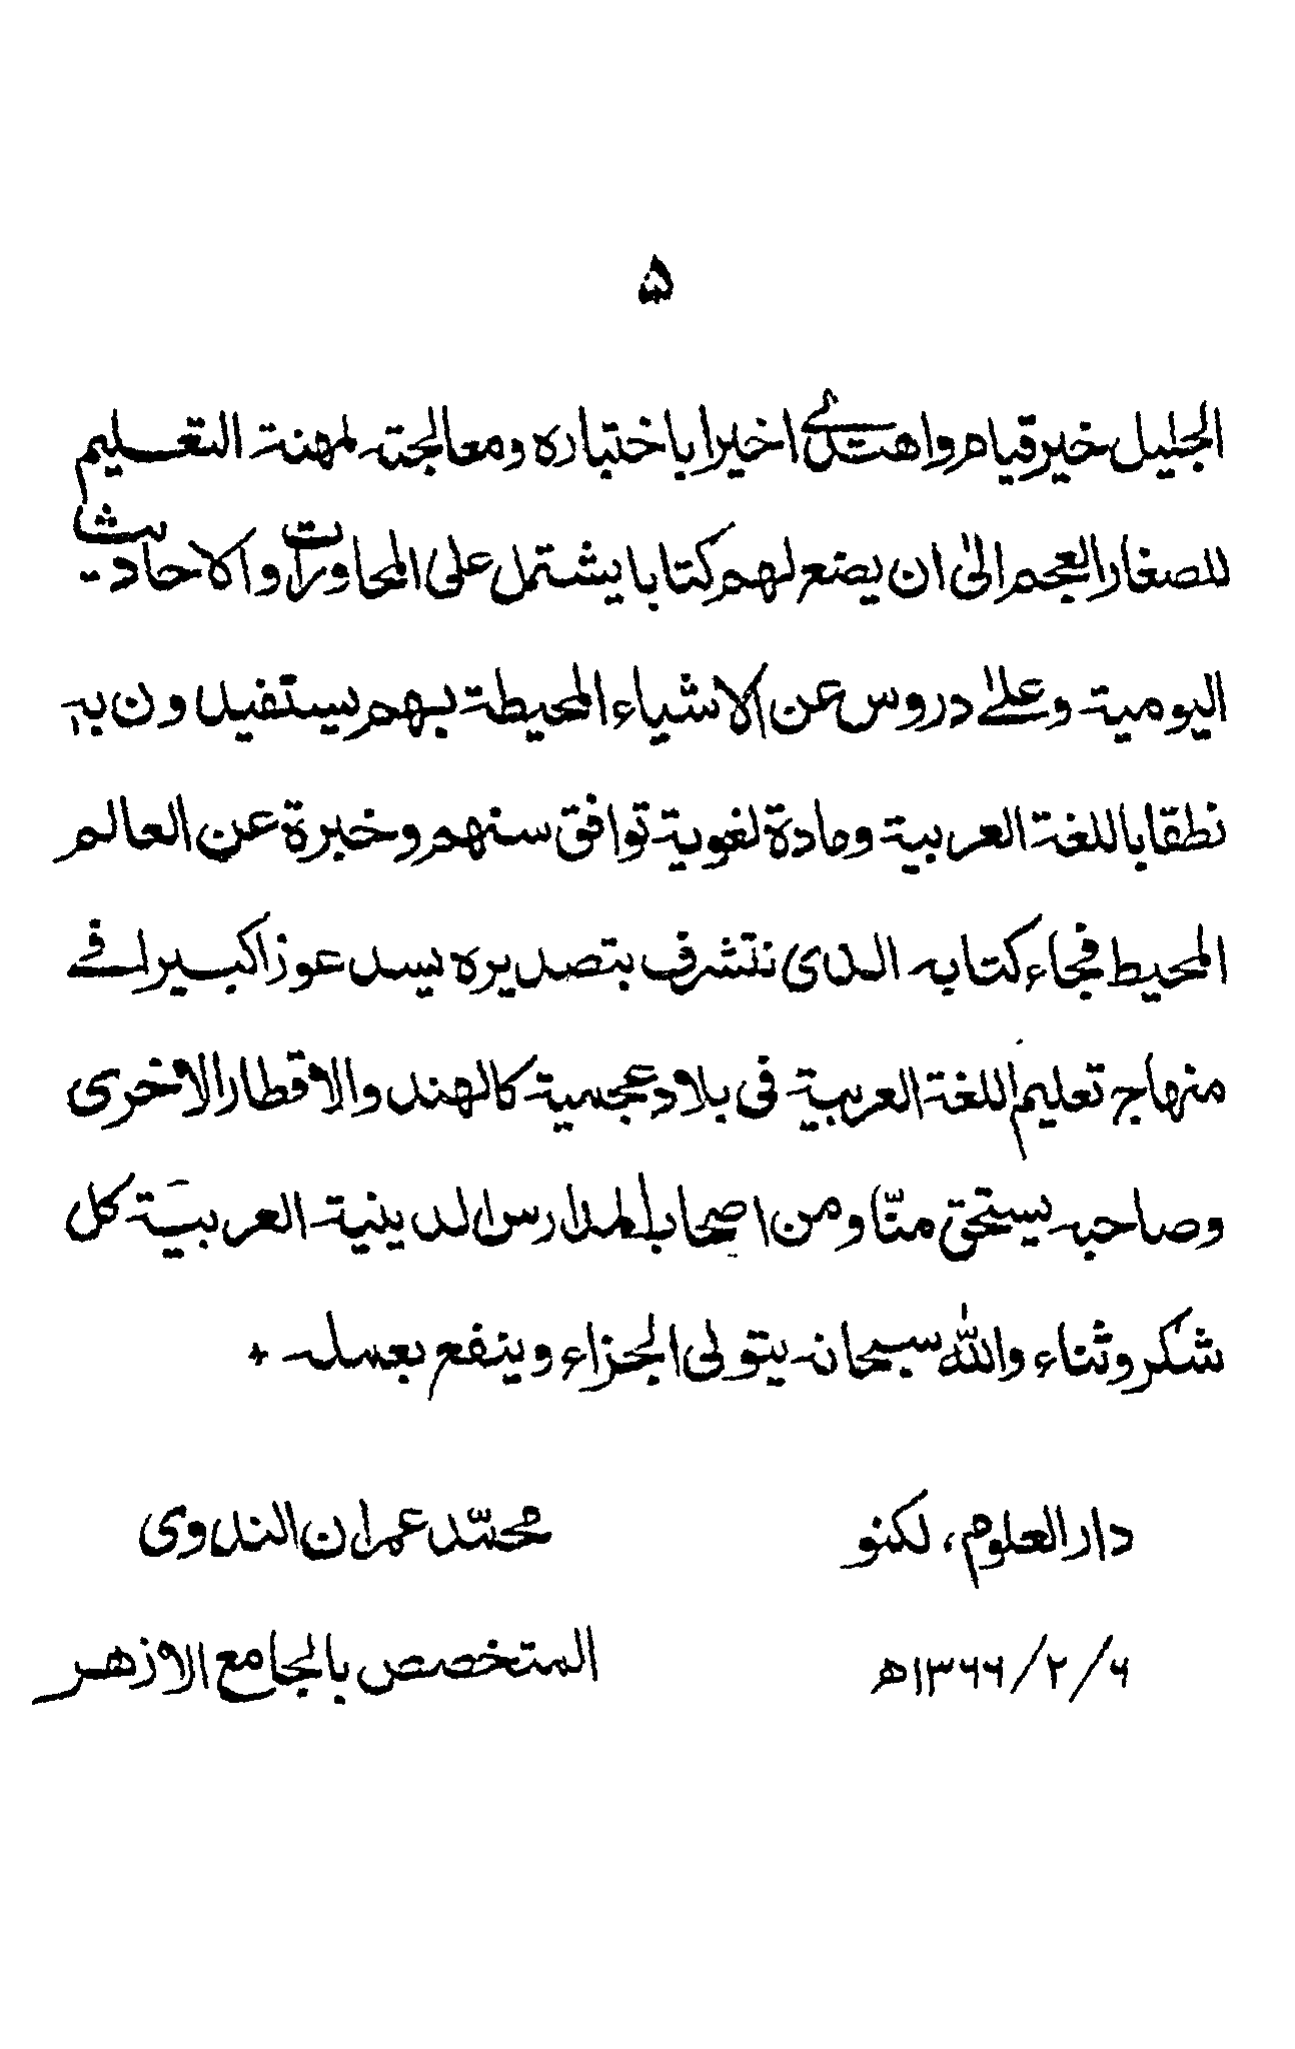 ۵
الجليل خير قيام واهتدىٰ اخيرا باختباره ومعالجته لمهنة التعليم
للصغار العجم الىٰ ان يضع لهم كتابا يشتمل على المحاورات والاحاديث
اليومية وعلىٰ دروس عن الاشياء المحيطة بهم يستفيدون به
نطقا باللغة العربية ومادة لغوية توافق سنهم وخبرة عن العالم
المحيط فجاء كتابه الذى نتشرف بتصديره يسد عوزا كبيرا فى
منهاج تعليم اللغة العربية فى بلاد عجمية كالهند والاقطار الاخرى
وصاحبه يستحق منّا ومن اصحاب المدارس الدينية العربيّة كل
شكر وثناء والله سبحانه يتولى الجزاء وينفع بعمله +
دار العلوم، لكنو
محمّد عمران الندوى
٦/٢/١٣٦٦ه
المتخصص بالجامع الازهر